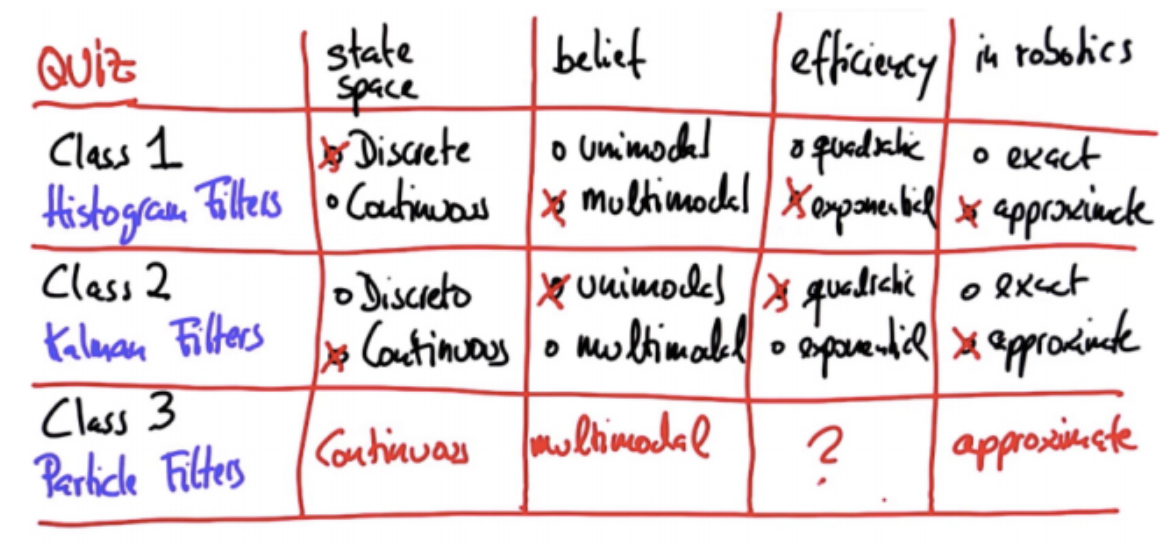 QUIZ
state space
belief
efficiency
in robotics
Class 1
Histogram Filters
Discrete
Continuous
unimodal
multimodal
quadratic
exponential
exact
approximate
Class 2
Kalman Filters
Discrete
Continuous
unimodal
multimodal
quadratic
exponential
exact
approximate
Class 3
Particle Filters
Continuous
multimodal
?
approximate